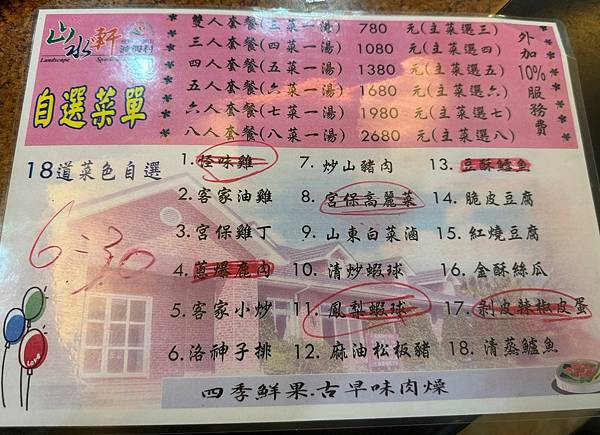 山水軒
渡假村
Landscape
自選菜單
雙人套餐(三菜一湯) 780 元(主菜選三)
三人套餐(四菜一湯) 1080 元(主菜選四)
四人套餐(五菜一湯) 1380 元(主菜選五)
五人套餐(六菜一湯) 1680 元(主菜選六)
六人套餐(七菜一湯) 1980 元(主菜選七)
八人套餐(八菜一湯) 2680 元(主菜選八)
外加10%服務費
18道菜色自選
6-30
1.怪味雞
2.客家油雞
3.宮保雞丁
4.蔥爆鹿肉
5.客家小炒
6.洛神子排
7.炒山豬肉
8.宮保高麗菜
9.山東白菜滷
10.清炒蝦球
11.鳳梨蝦球
12.麻油松板豬
13.豆酥鱈魚
14.脆皮豆腐
15.紅燒豆腐
16.金酥絲瓜
17.剝皮辣椒皮蛋
18.清蒸鱸魚
Love
四季鮮果.古早味肉燥